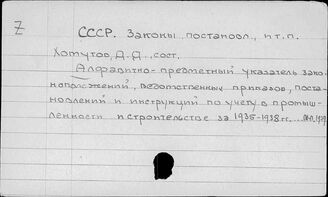 Z
СССР. Законы, постановл., и т.п.
Хотутов, Д.Д., сост.
Алфавитно-предметный указатель зако-
ноположений, ведомственных приказов, поста-
новлений и инструкций по учету в промыш-
ленности и строительстве за 1935-1938 гг. ...